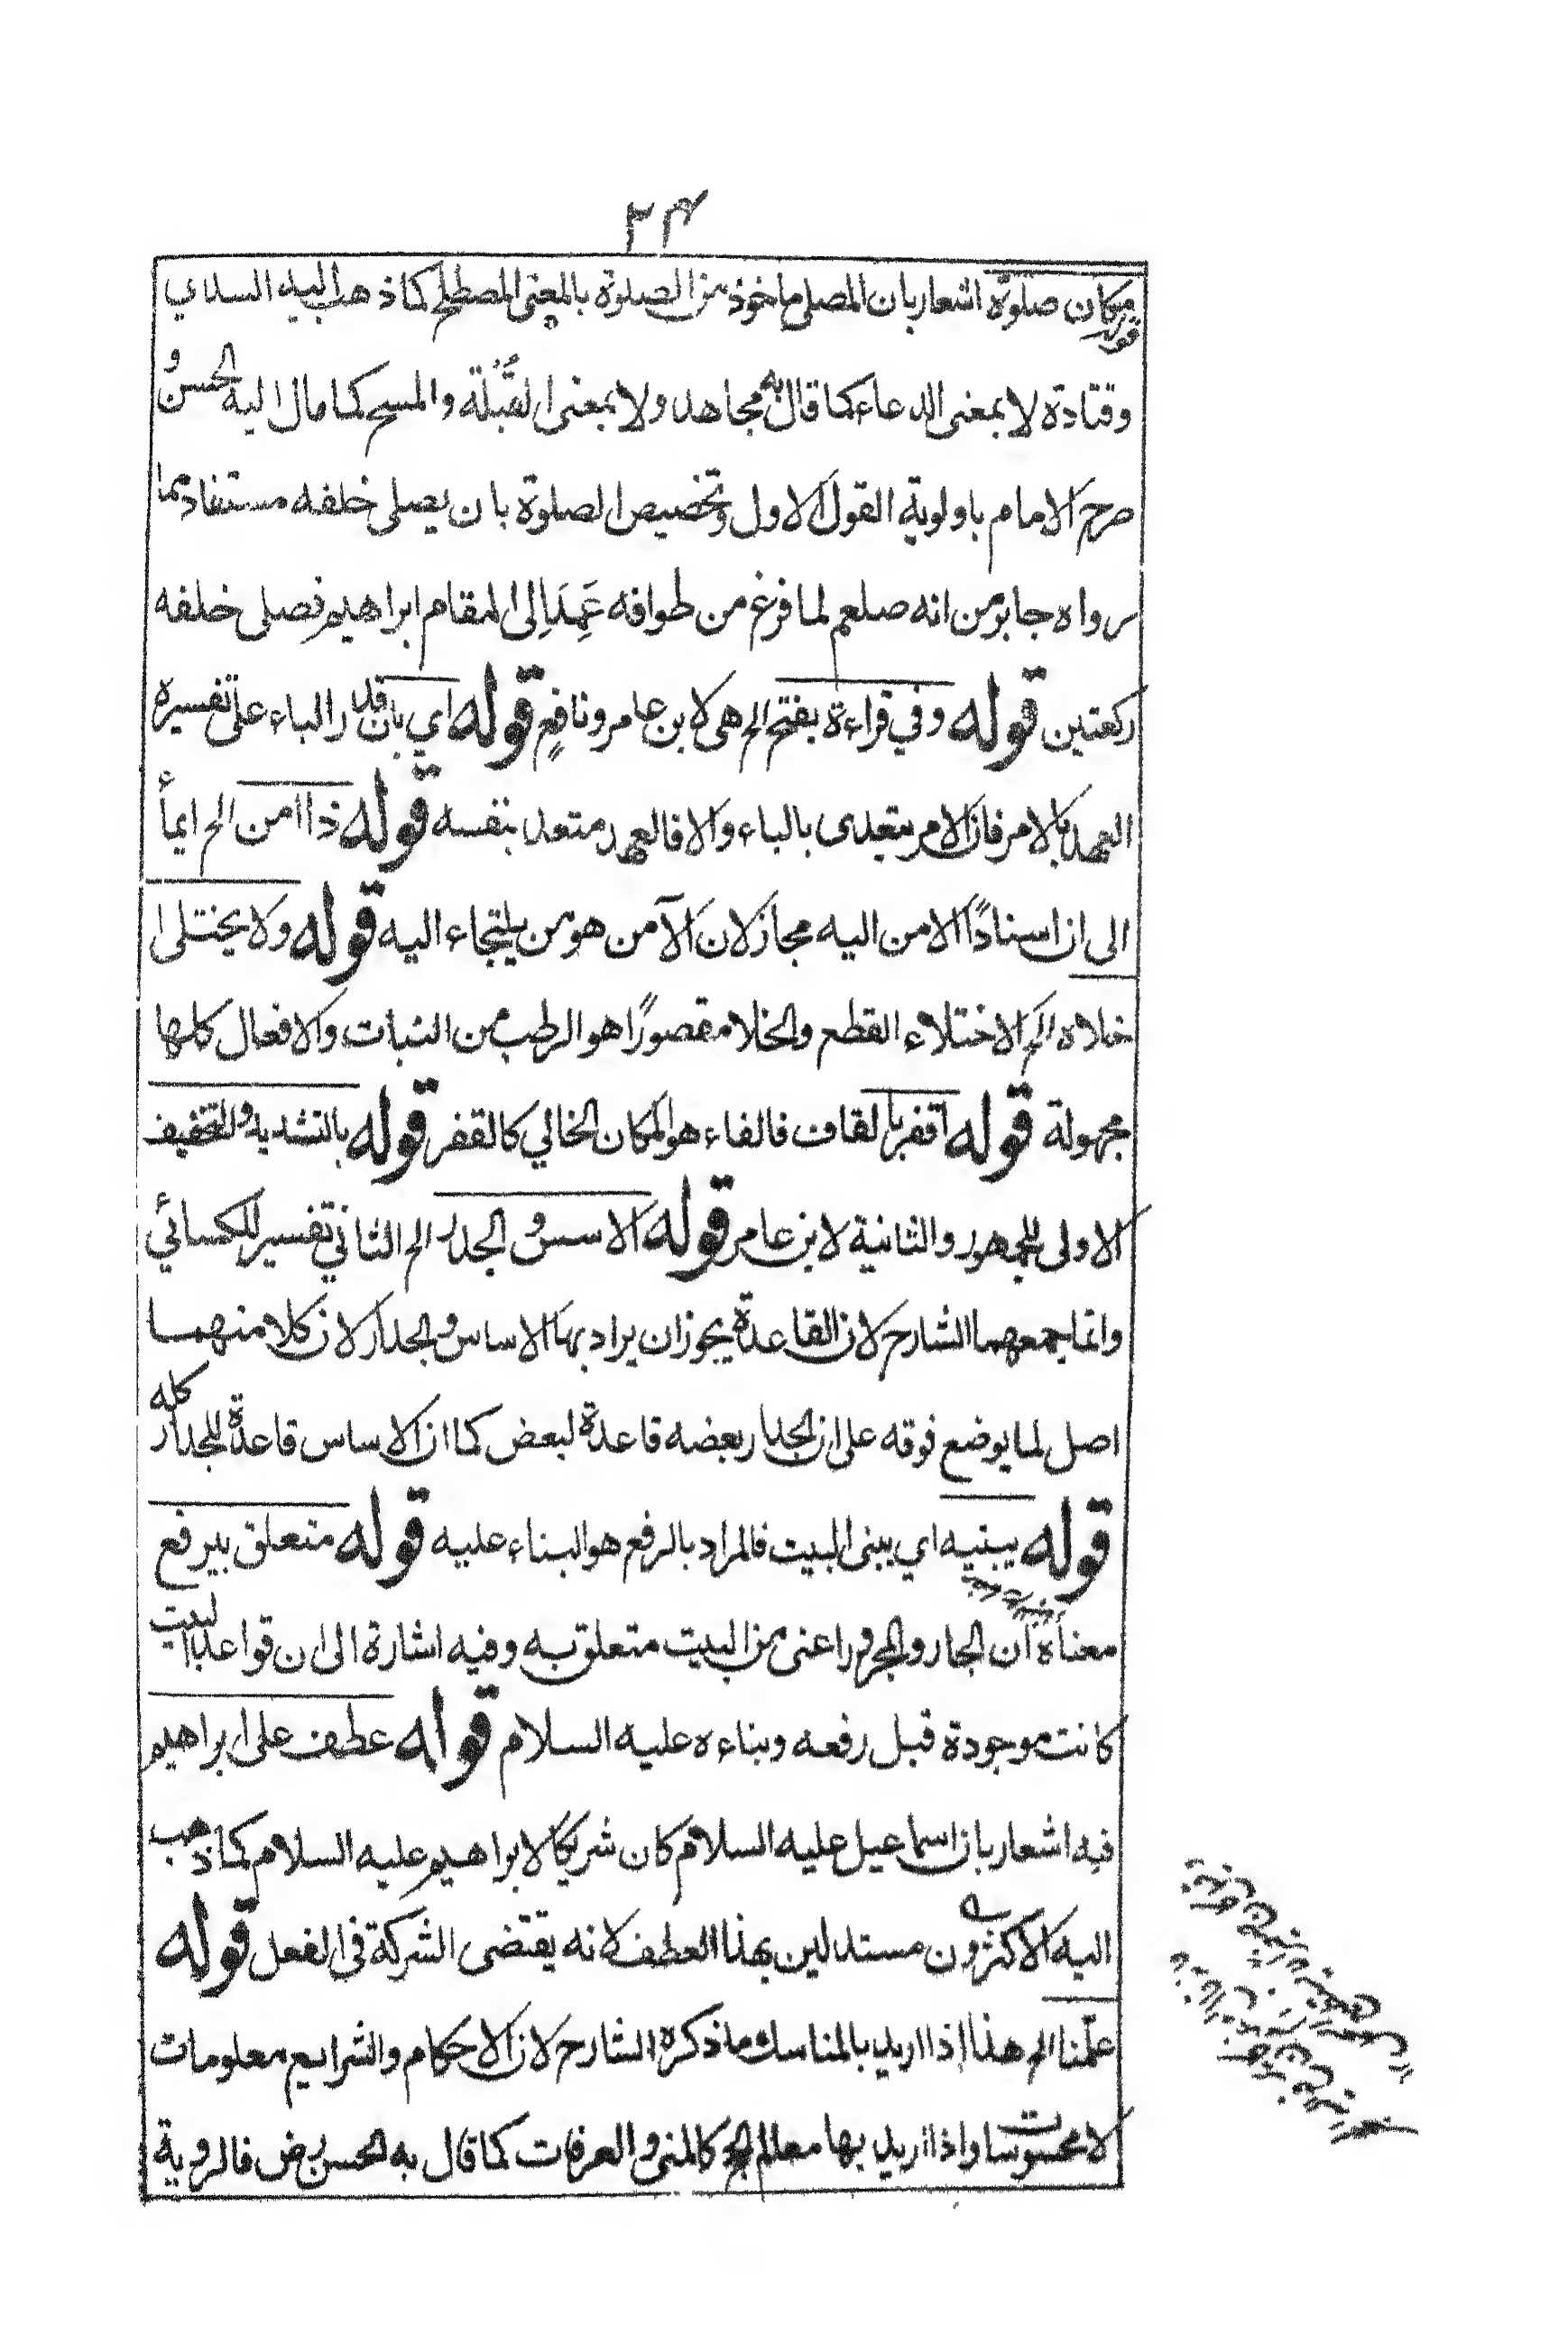 ٢٤
قوله مكان صلوة اشعار بان المصلى ماخوذ من الصلوة بالمعنى المصطلح كما ذهب اليه السدي
وقتادة لا بمعنى الدعاء كما قال به مجاهد ولا بمعنى القُبُلة والمسح كما مال اليه الحسن و
صرح الامام باولوية القول الاول وتخصيص الصلوة بان يصلى خلفه مستفاد مما
رواه جابر من انه صلعم لما فرغ من طوافه عَمِدَ اِلى المقام ابراهيم فصلى خلفه
ركعتين قوله وفي قراءة بفتح الخ هى لابن عامر ونافعٍ قوله اي بان قدر الباء على تفسيره
العهد بالامر فان الامر يتعدى بالباء والا فالعهد متعد بنفسه قوله ذا امن الخ ايمأ
الى ان اسنادًا الامن اليه مجاز لان الآمن هو من يلتجاء اليه قوله ولا يختلى
خلاه الخ الاختلاء القطع والخلا مقصورًا هو الرطب من النبات والافعال كلها
مجهولة قوله اقفر بالقاف فالفاء هو المكان الخالي كالقفر قوله بالتشديد والتخفيف
الاولى للجمهور والثانية لابن عامر قوله الاسس والجدر الخ الثاني تفسير للكسائي
وانما جمعهما الشارح لان القاعدة يجوز ان يراد بها الاساس والجدار لان كلا منهما
اصل لما يوضع فوقه على ان الجدار بعضه قاعدة لبعض كما ان الاساس قاعدة للجدار كله
قوله يبنيه اي يبنى البيت فالمراد بالرفع هو البناء عليه قوله متعلق بيرفع
معناه ان الجار والمجرور اعنى من البيت متعلق به وفيه اشارة الى ان قواعد البيت
كانت موجودة قبل رفعه وبناءه عليه السلام قوله عطف على ابراهيم
فيه اشعار بان اسماعيل عليه السلام كان شريكا لابراهيم عليه السلام كما ذهب
اليه الاكثرون مستدلين بهذا العطف لانه يقتضى الشركة في الفعل قوله
علّمنا الخ هذا اذا اريد بالمناسك ما ذكره الشارح لان الاحكام والشرايع معلومات
لا محسوسات واذا اريد بها معالم الحج كالمنى والعرفات كما قال به الحسن رض فالروية